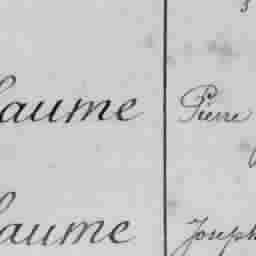 laume Pierre
laume Joseph